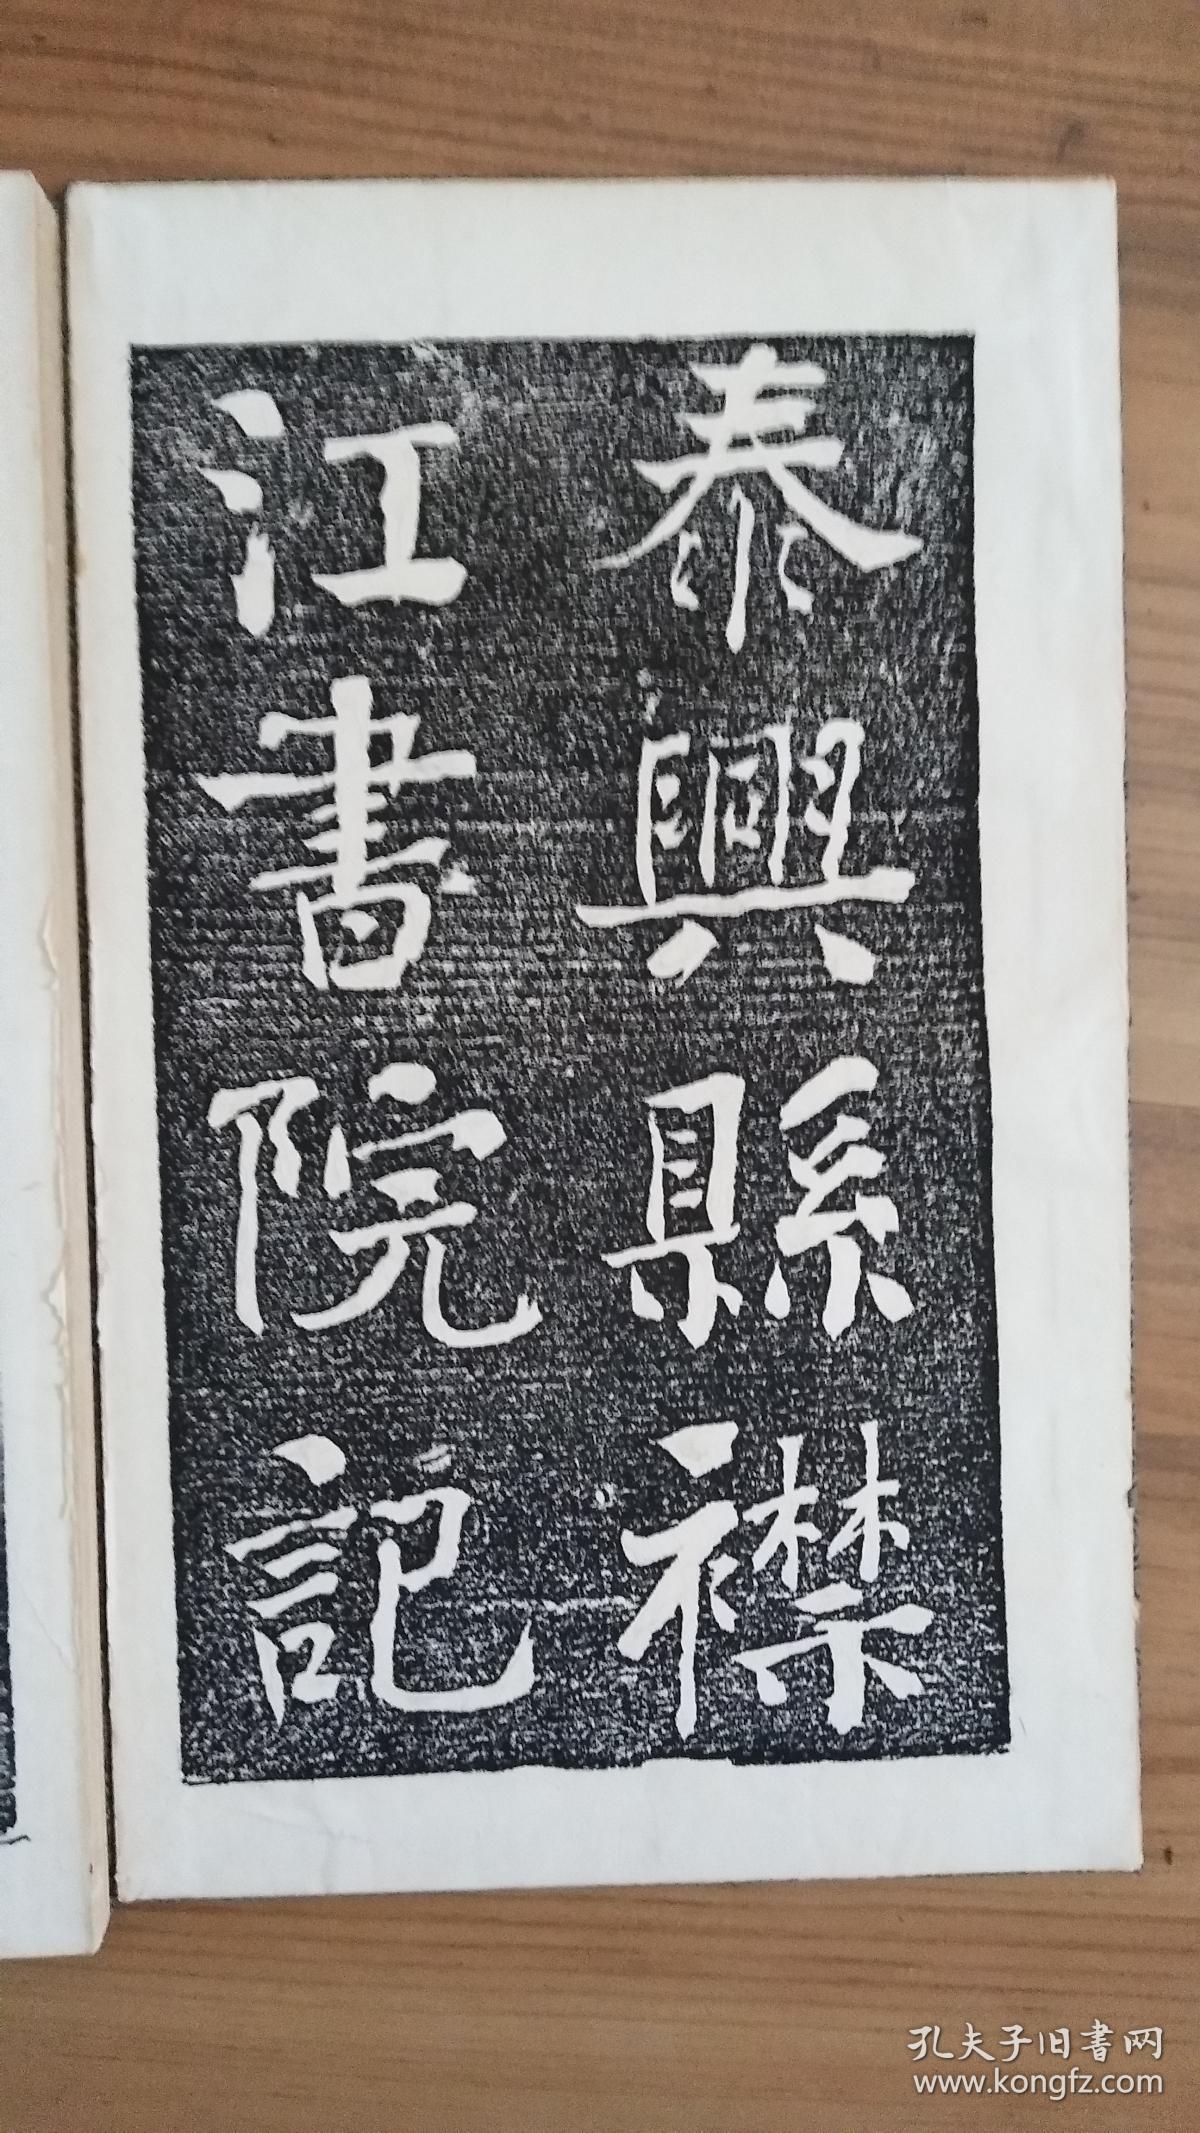 泰興縣襟
江書院記
孔夫子旧書网
www.kongfz.com